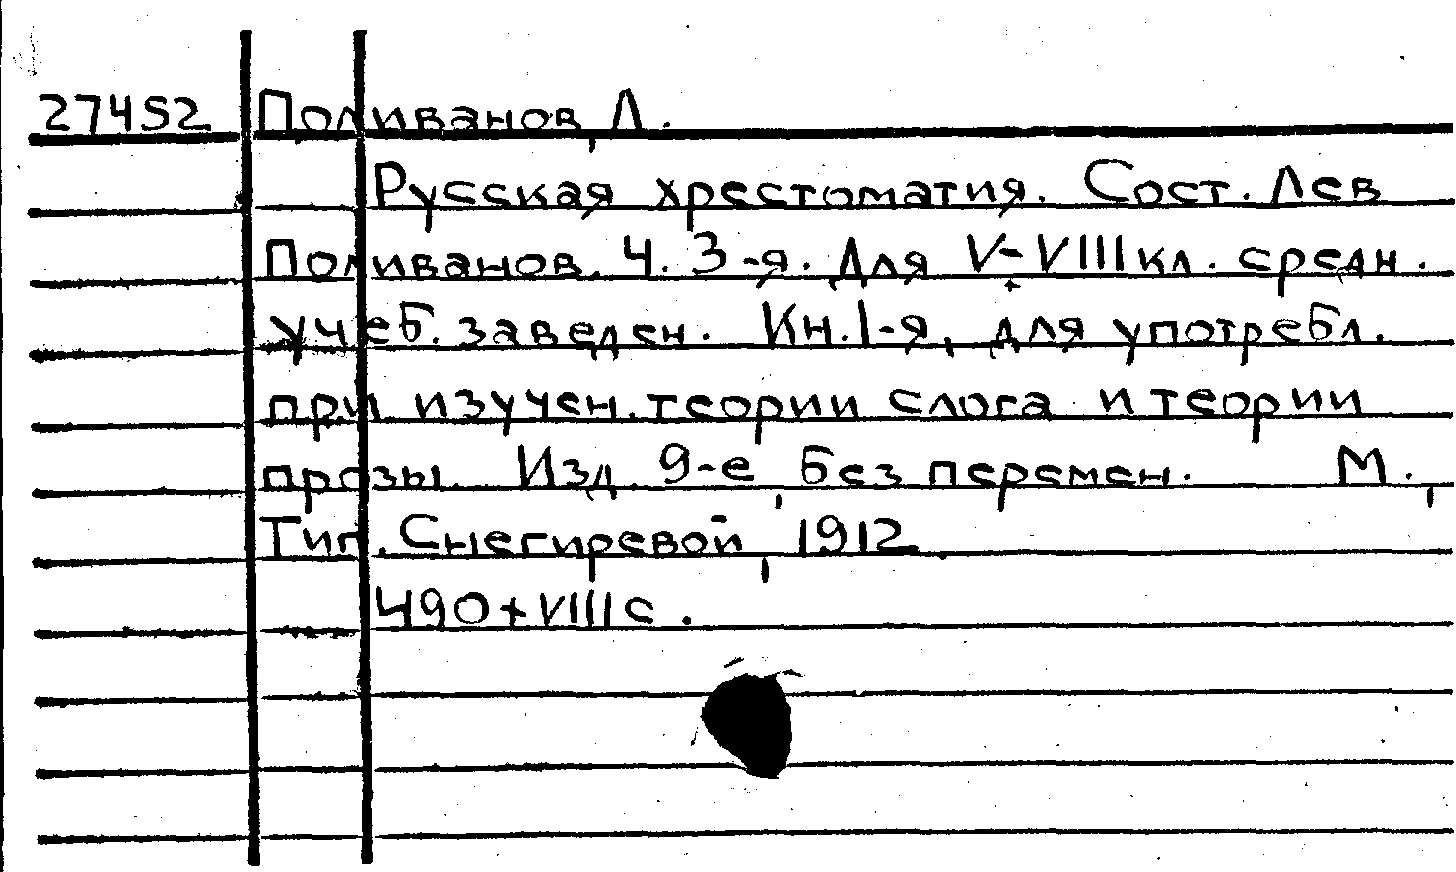 27452 Поливанов, Л.
Русская хрестоматия. Сост. Лев
Поливанов. Ч. 3-я. Для V-VIII кл. средн.
учеб. заведен. Кн. I-я, для употребл.
при изучен. теории слога и теории
прозы. Изд. 9-е, без перемен. М.,
Тип. Снегиревой, 1912.
490+VIII с.